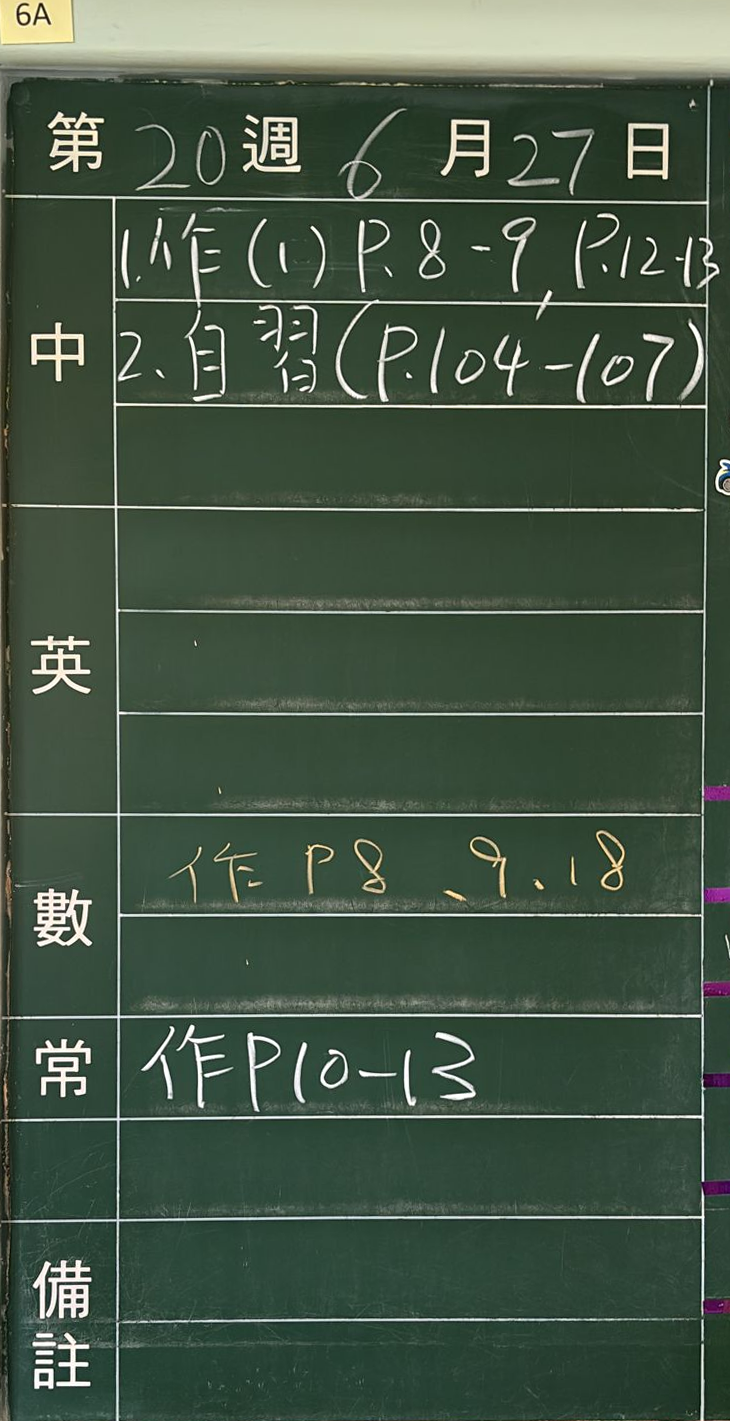 6A
第 20 週 6 月 27 日
中
1.作(1) P.8-9, P.12-13
2.自習(P.104-107)
英
數
作 P8、9、18
常
作P10-13
備註